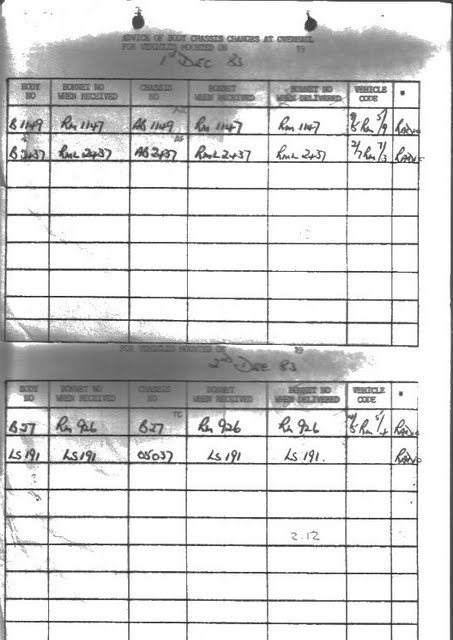 ADVICE OF BODY CHASSIS CHANGES AT OVERHAUL
FOR VEHICLES MOUNTED ON 19
1st DEC 83
BODY NO BONNET NO WHEN RECEIVED CHASSIS NO BONNET WHEN RECEIVED BONNET NO WHEN DELIVERED VEHICLE CODE *
B1149 Rm 1147 AB 1149 Rm 1147 Rm 1147 Rm 5/9 RADIO
B2437 RmL 2437 AB 2437 RmL 2437 RmL 2437 2/7 Rm 7/3 RADIO
FOR VEHICLES MOUNTED ON 19
2nd DEC 83
BODY NO BONNET NO WHEN RECEIVED CHASSIS NO BONNET WHEN RECEIVED BONNET NO WHEN DELIVERED VEHICLE CODE *
TC
B27 Rm 926 B27 Rm 926 Rm 926 Rm RADIO
LS 191 LS 191 05037 LS 191 LS 191. RADIO
2.12